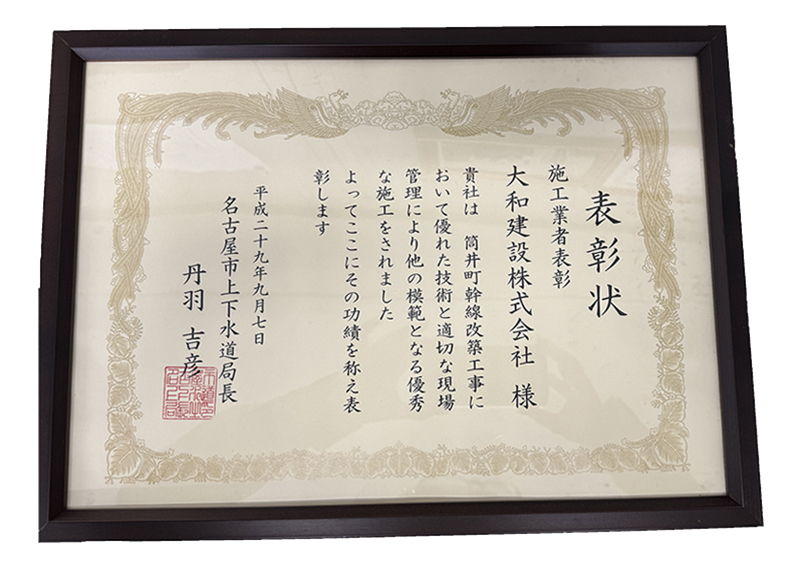 表彰状
施工業者表彰
大和建設株式会社 様
貴社は 筒井町幹線改築工事に
おいて優れた技術と適切な現場
管理により他の模範となる優秀
な施工をされました
よってここにその功績を称え表
彰します
平成二十九年九月七日
名古屋市上下水道局長
丹羽 吉彦